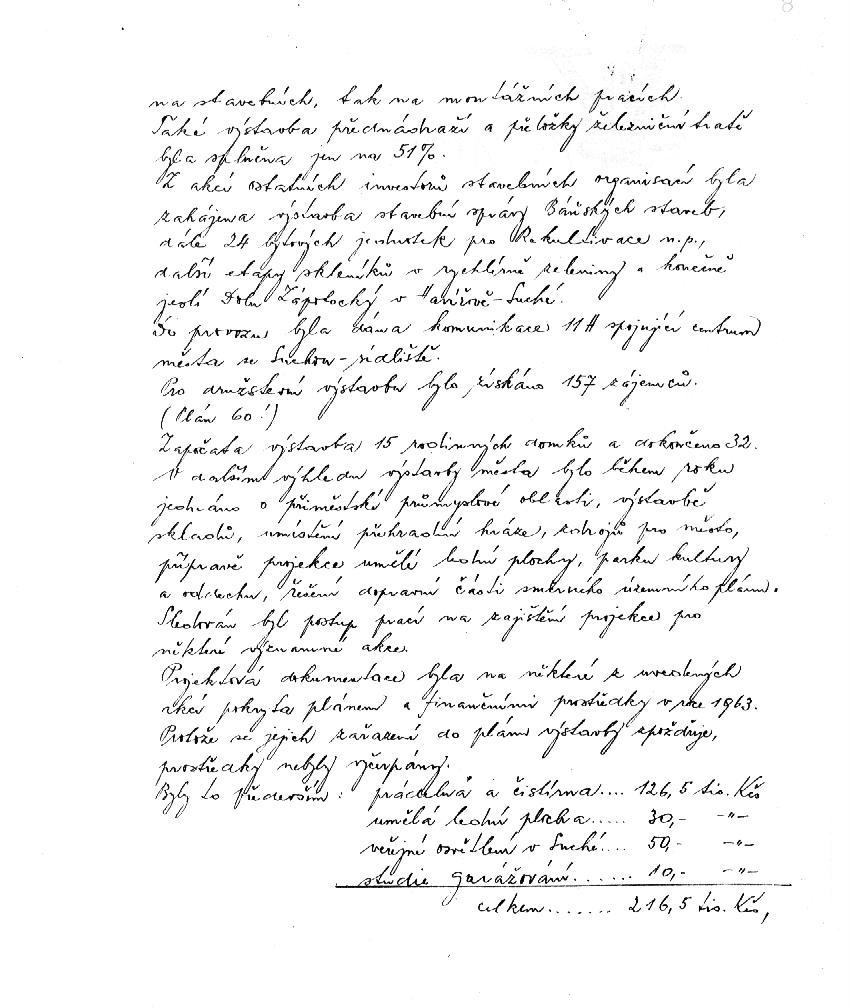 na stavebních, tak na montážních pracích.
Také výstavba přednádraží a přeložky železniční tratě
byla splněna jen na 51%.
Z akcí ostatních investorů stavebních organisací byla
zahájena výstavba stavební správy Báňských staveb,
dále 24 bytových jednotek pro Rekultivace n.p.,
další etapy skleníků v rychlírně zeleniny a konečně
jeslí Dolu Zápotocký v Havířově-Suché.
Do provozu byla dána komunikace 11H spojující centrum
města se Suchou-sídliště.
Pro družstevní výstavbu bylo získáno 157 zájemců.
(Plán 60!)
Započata výstavba 15 rodinných domků a dokončeno 32.
V dalším výhledu výstavby města bylo během roku
jednáno o příměstské průmyslové oblasti, výstavbě
skladů, umístění přehradní hráze, zdrojů pro město,
přípravě projekce umělé lední plochy, parku kultury
a oddechu, řešení dopravní části směrného územního plánu.
Sledován byl postup prací na zajištění projekce pro
některé významné akce.
Projektová dokumentace byla na některé z uvedených
akcí pokryta plánem a finančními prostředky v roce 1963.
Protože se jejich zařazení do plánu výstavby zpožďuje,
prostředky nebyly vyčerpány.
Byly to především: prádelna a čistírna.... 126,5 tis. Kčs
umělá lední plocha..... 30,- -"-
veřejné osvětlení v Suché.... 50,- -"-
studie garážování....... 10,- -"-
celkem....... 216,5 tis. Kčs,